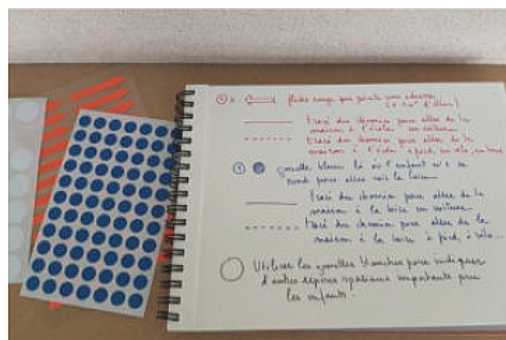 flèche rouge qui pointe une adresse
tracé du chemin pour aller de la
maison à l'école en voiture
tracé du chemin pour aller de la
maison à l'école à pied, en vélo, en bus
gommette bleue là où l'enfant se
rend pour aller voir la Loire
tracé du chemin pour aller de la
maison à la Loire en voiture
tracé du chemin pour aller de la
maison à la Loire à pied, à vélo...
Utiliser les gommettes blanches pour indiquer
d'autres repères spatiaux importants pour
les enfants.